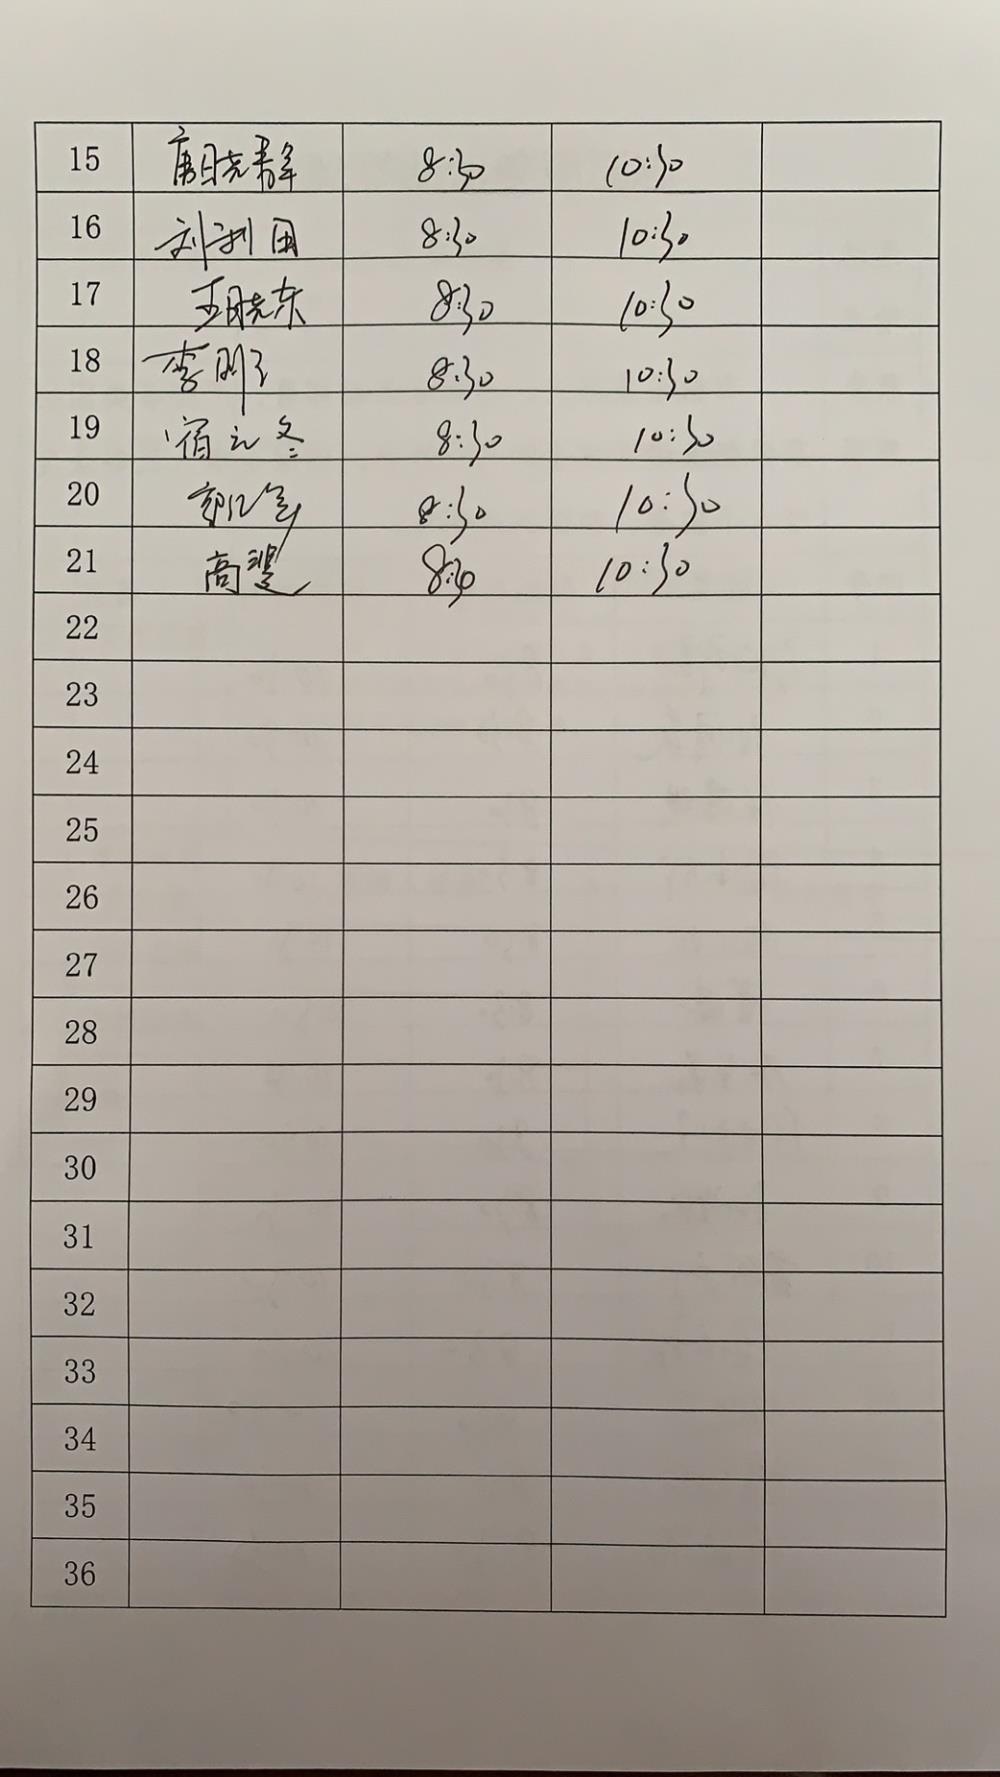 15 唐晓静 8:30 10:30
16 刘利田 8:30 10:30
17 王晓东 8:30 10:30
18 李刚 8:30 10:30
19 宿元冬 8:30 10:30
20 8:30 10:30
21 高 8:30 10:30
22
23
24
25
26
27
28
29
30
31
32
33
34
35
36